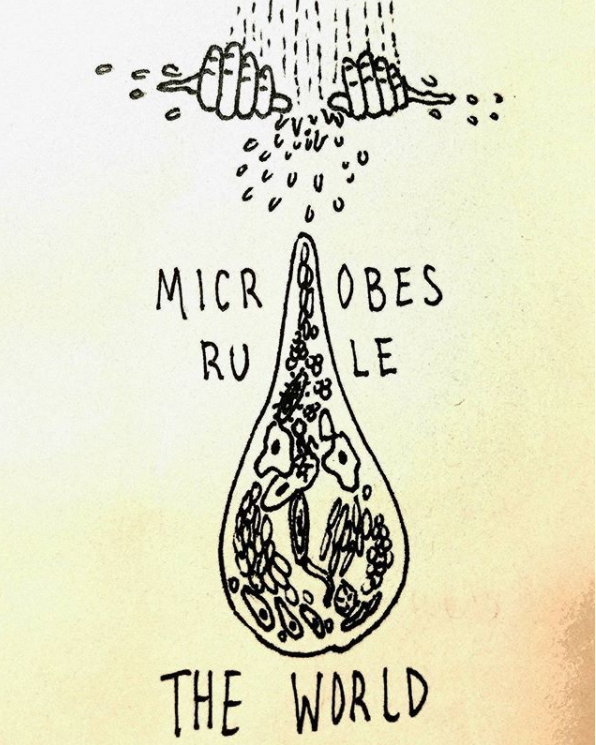 MICROBES
RULE
THE WORLD